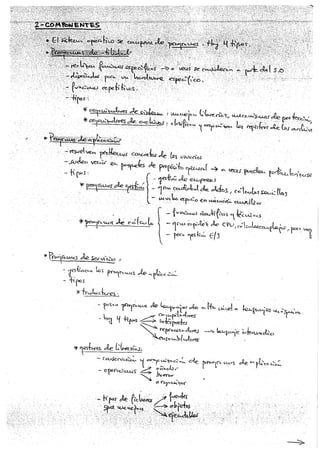 2-COMPONENTES
• El sistema operativo se compone de programas. Hay 4 tipos.
• Programas de utilidad
- realizan funciones específicas → a veces se consideran a parte del S.O
- diseñadas para un hardware específico.
- funciones repetitivas.
- tipos:
* organizadores de sistema: manejan librerías, mecanismos de
* organizadores de archivos: clasifican y organizan los registros de los archivos
• Programas de aplicación
- resuelven problemas concretos de los usuarios
- suelen venir en paquetes de propósito general → a veces pueden
- tipos:
* programas de gestión
- gestión de empresas
- gran cantidad de datos, cálculos sencillos
- mucho espacio en memoria auxiliar
* programas de cálculo
- funciones científicas y técnicas
- gran rapidez de CPU, cálculos complejos,
- poca gestión E/S
• Programas de servicio:
- gestionan los programas de aplicación
- tipos
* traductores:
- pasan programas de lenguajes de alto nivel a lenguajes máquina.
- hay 4 tipos
compiladores
intérpretes
→ lenguaje intermedio
ensambladores
* gestores de librerías:
- conservación y organización de programas de aplicación
- operaciones
añadir
borrar
organizar
- tipos de ficheros
que manejan
fuentes
objetos
ejecutables
→